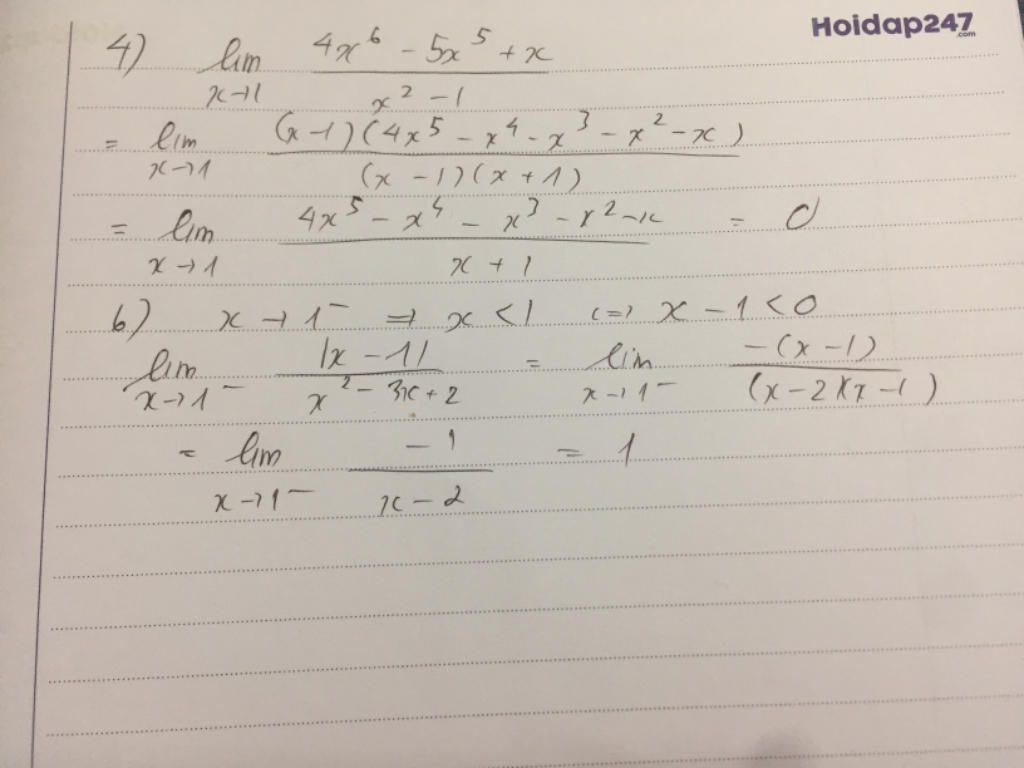 Hoidap247.com
4) lim x→1 (4x⁶ - 5x⁵ + x) / (x² - 1)
= lim x→1 ((x-1)(4x⁵ - x⁴ - x³ - x² - x)) / ((x-1)(x+1))
= lim x→1 (4x⁵ - x⁴ - x³ - x² - x) / (x+1) = 0
6) x → 1⁻ ⇒ x < 1 <=> x - 1 < 0
lim x→1⁻ |x-1| / (x² - 3x + 2) = lim x→1⁻ -(x-1) / ((x-2)(x-1))
= lim x→1⁻ -1 / (x-2) = 1